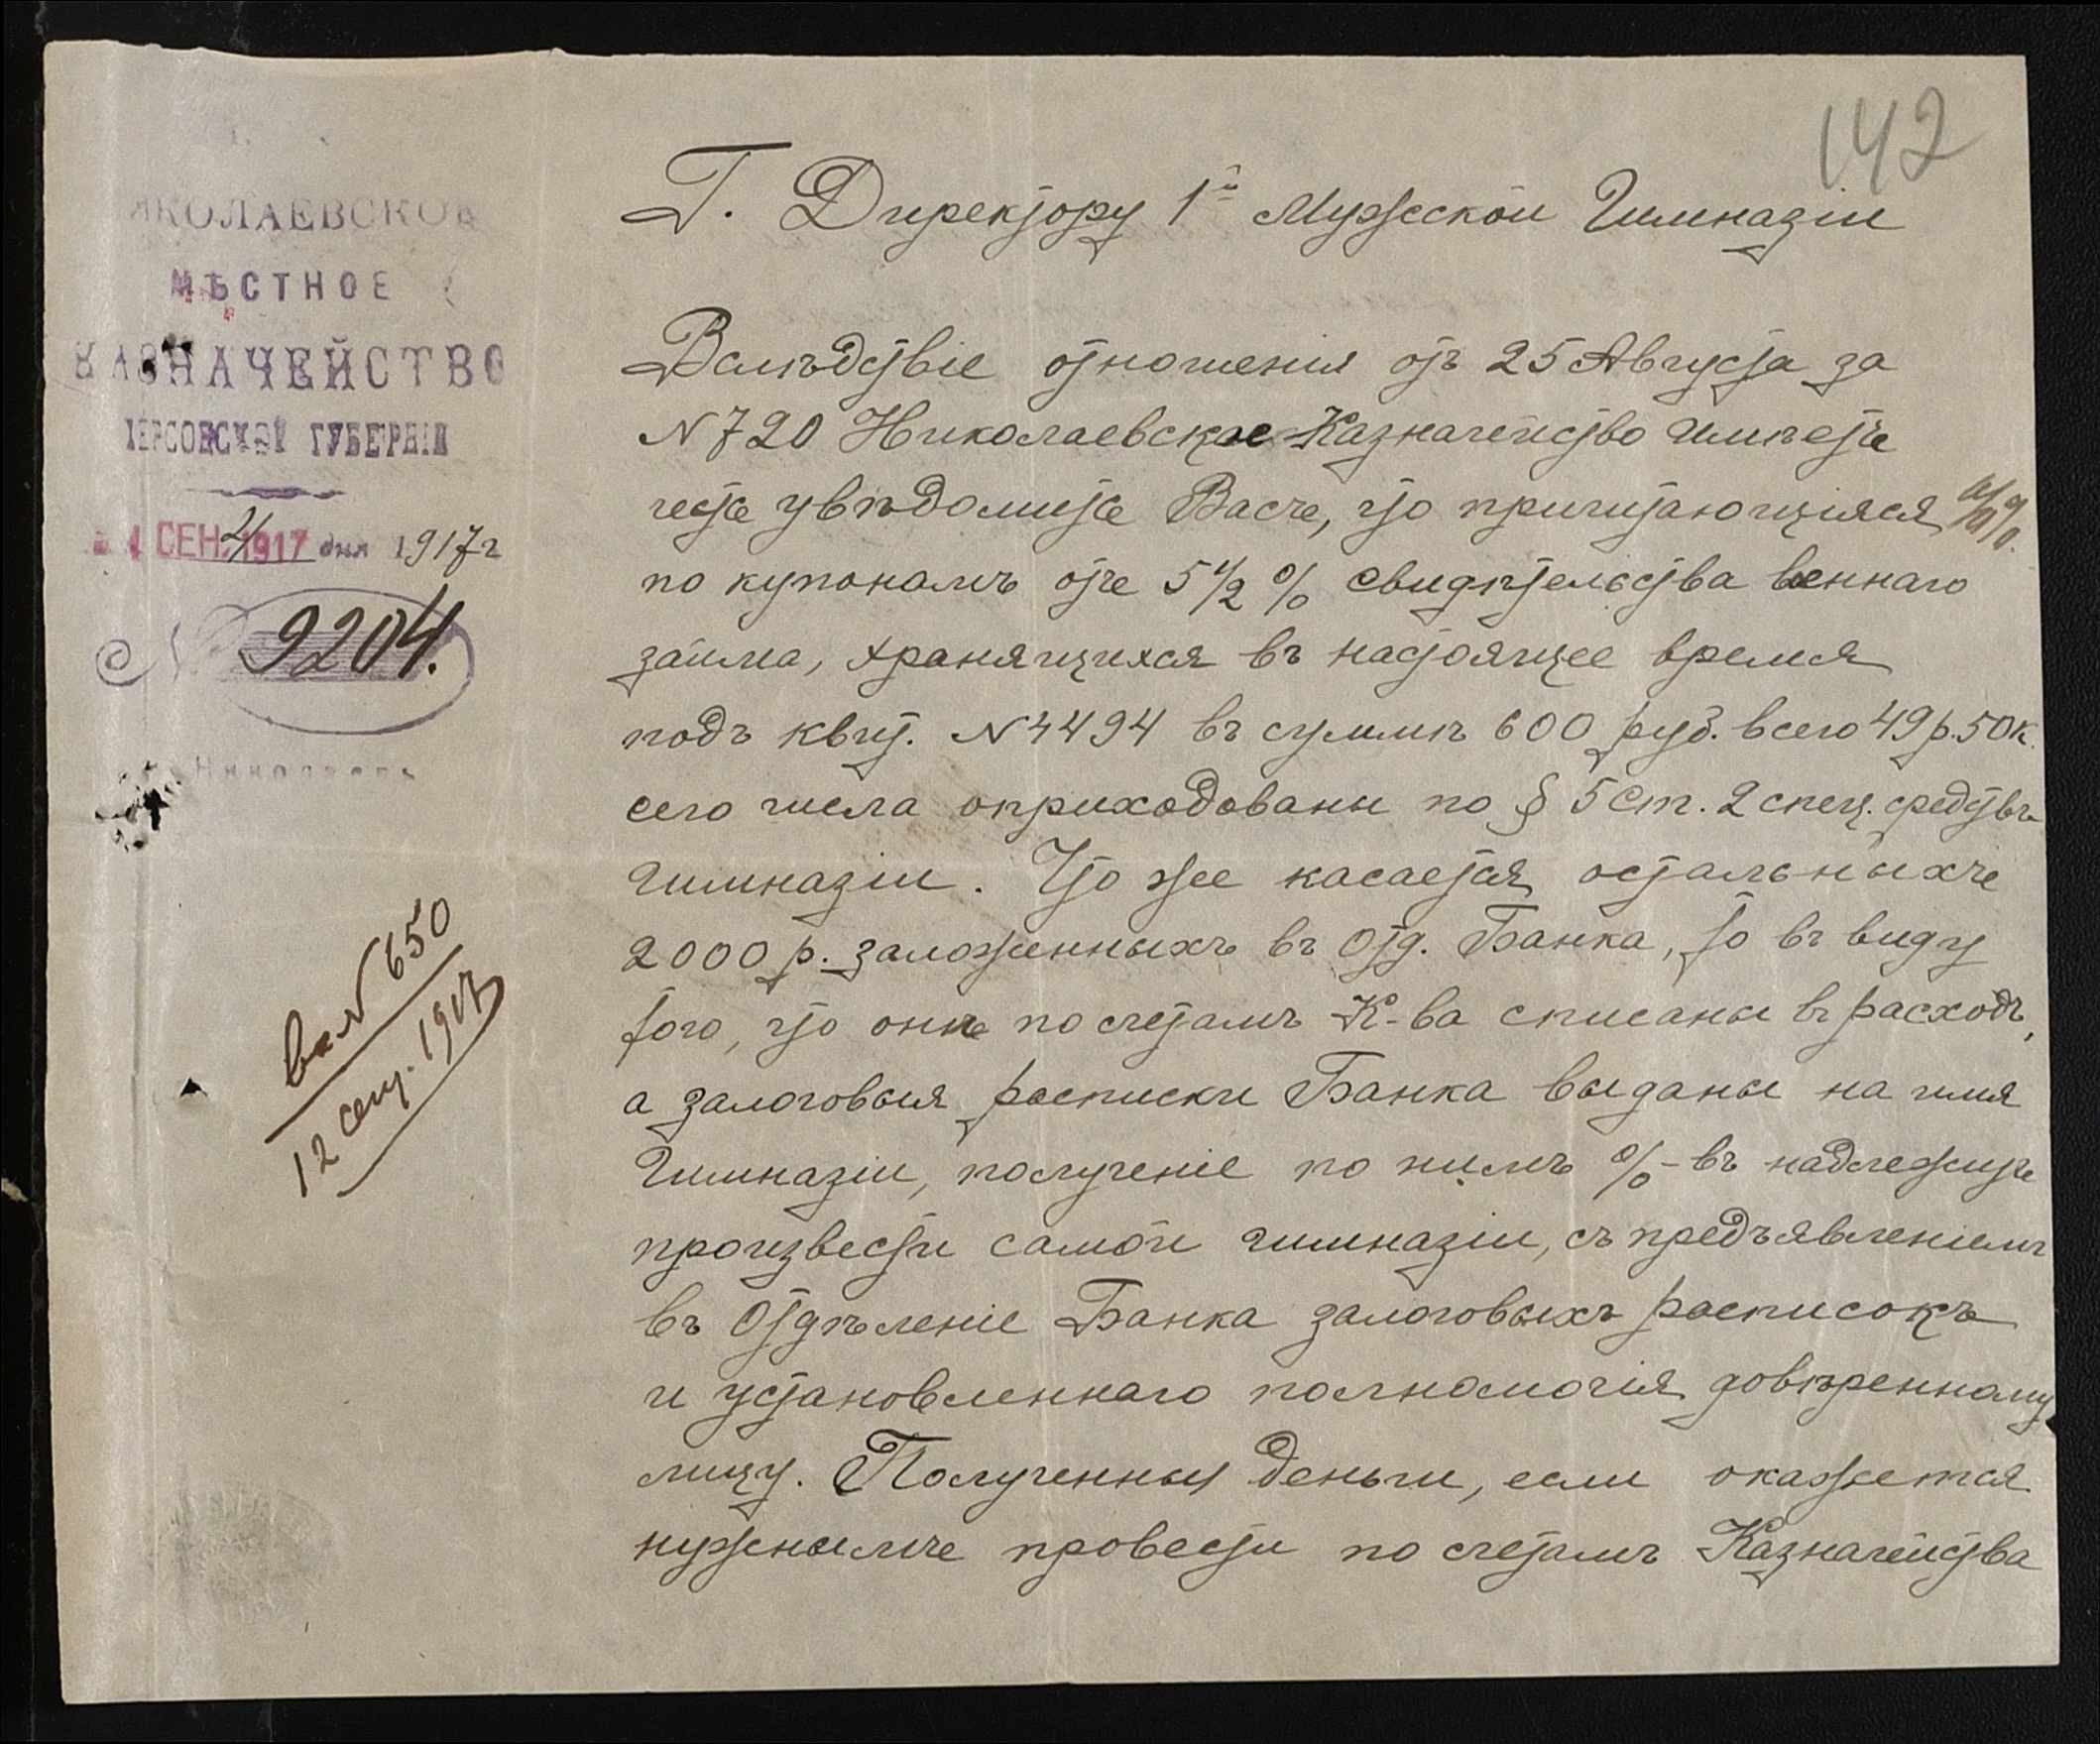 142
НИКОЛАЕВСКОЕ
МѢСТНОЕ
КАЗНАЧЕЙСТВО
ХЕРСОНСКОЙ ГУБЕРНІИ
СЕН. 1917 дня 1917 г
№ 9204.
Николаевъ
вх. № 650
12 сент. 1917
Г. Директору 1й Мужской Гимназіи
Вслѣдствіе отношенія отъ 25 Августа за
N 720 Николаевское Казначейство имѣетъ
честь увѣдомить Васъ, что причитающіяся %%
по купонамъ отъ 5 1/2 % свидѣтельства военнаго
займа, хранящихся въ настоящее время
подъ квит. N 4494 въ суммѣ 600 руб. всего 49 р. 50 к.
сего числа оприходованы по § 5 ст. 2 спец. средствъ
гимназіи. Что же касается остальныхъ
2000 р. заложенныхъ въ Отд. Банка, то въ виду
того, что онѣ по счетамъ К-ва списаны въ расходъ,
а залоговыя расписки Банка выданы на имя
Гимназіи, полученіе по нимъ %-въ надлежитъ
произвести самой гимназіи, съ предъявленіемъ
въ Отдѣленіе Банка залоговыхъ расписокъ
и установленнаго полномочія довѣренному
лицу. Полученныя деньги, если окажется
нужнымъ провести по счетамъ Казначейства